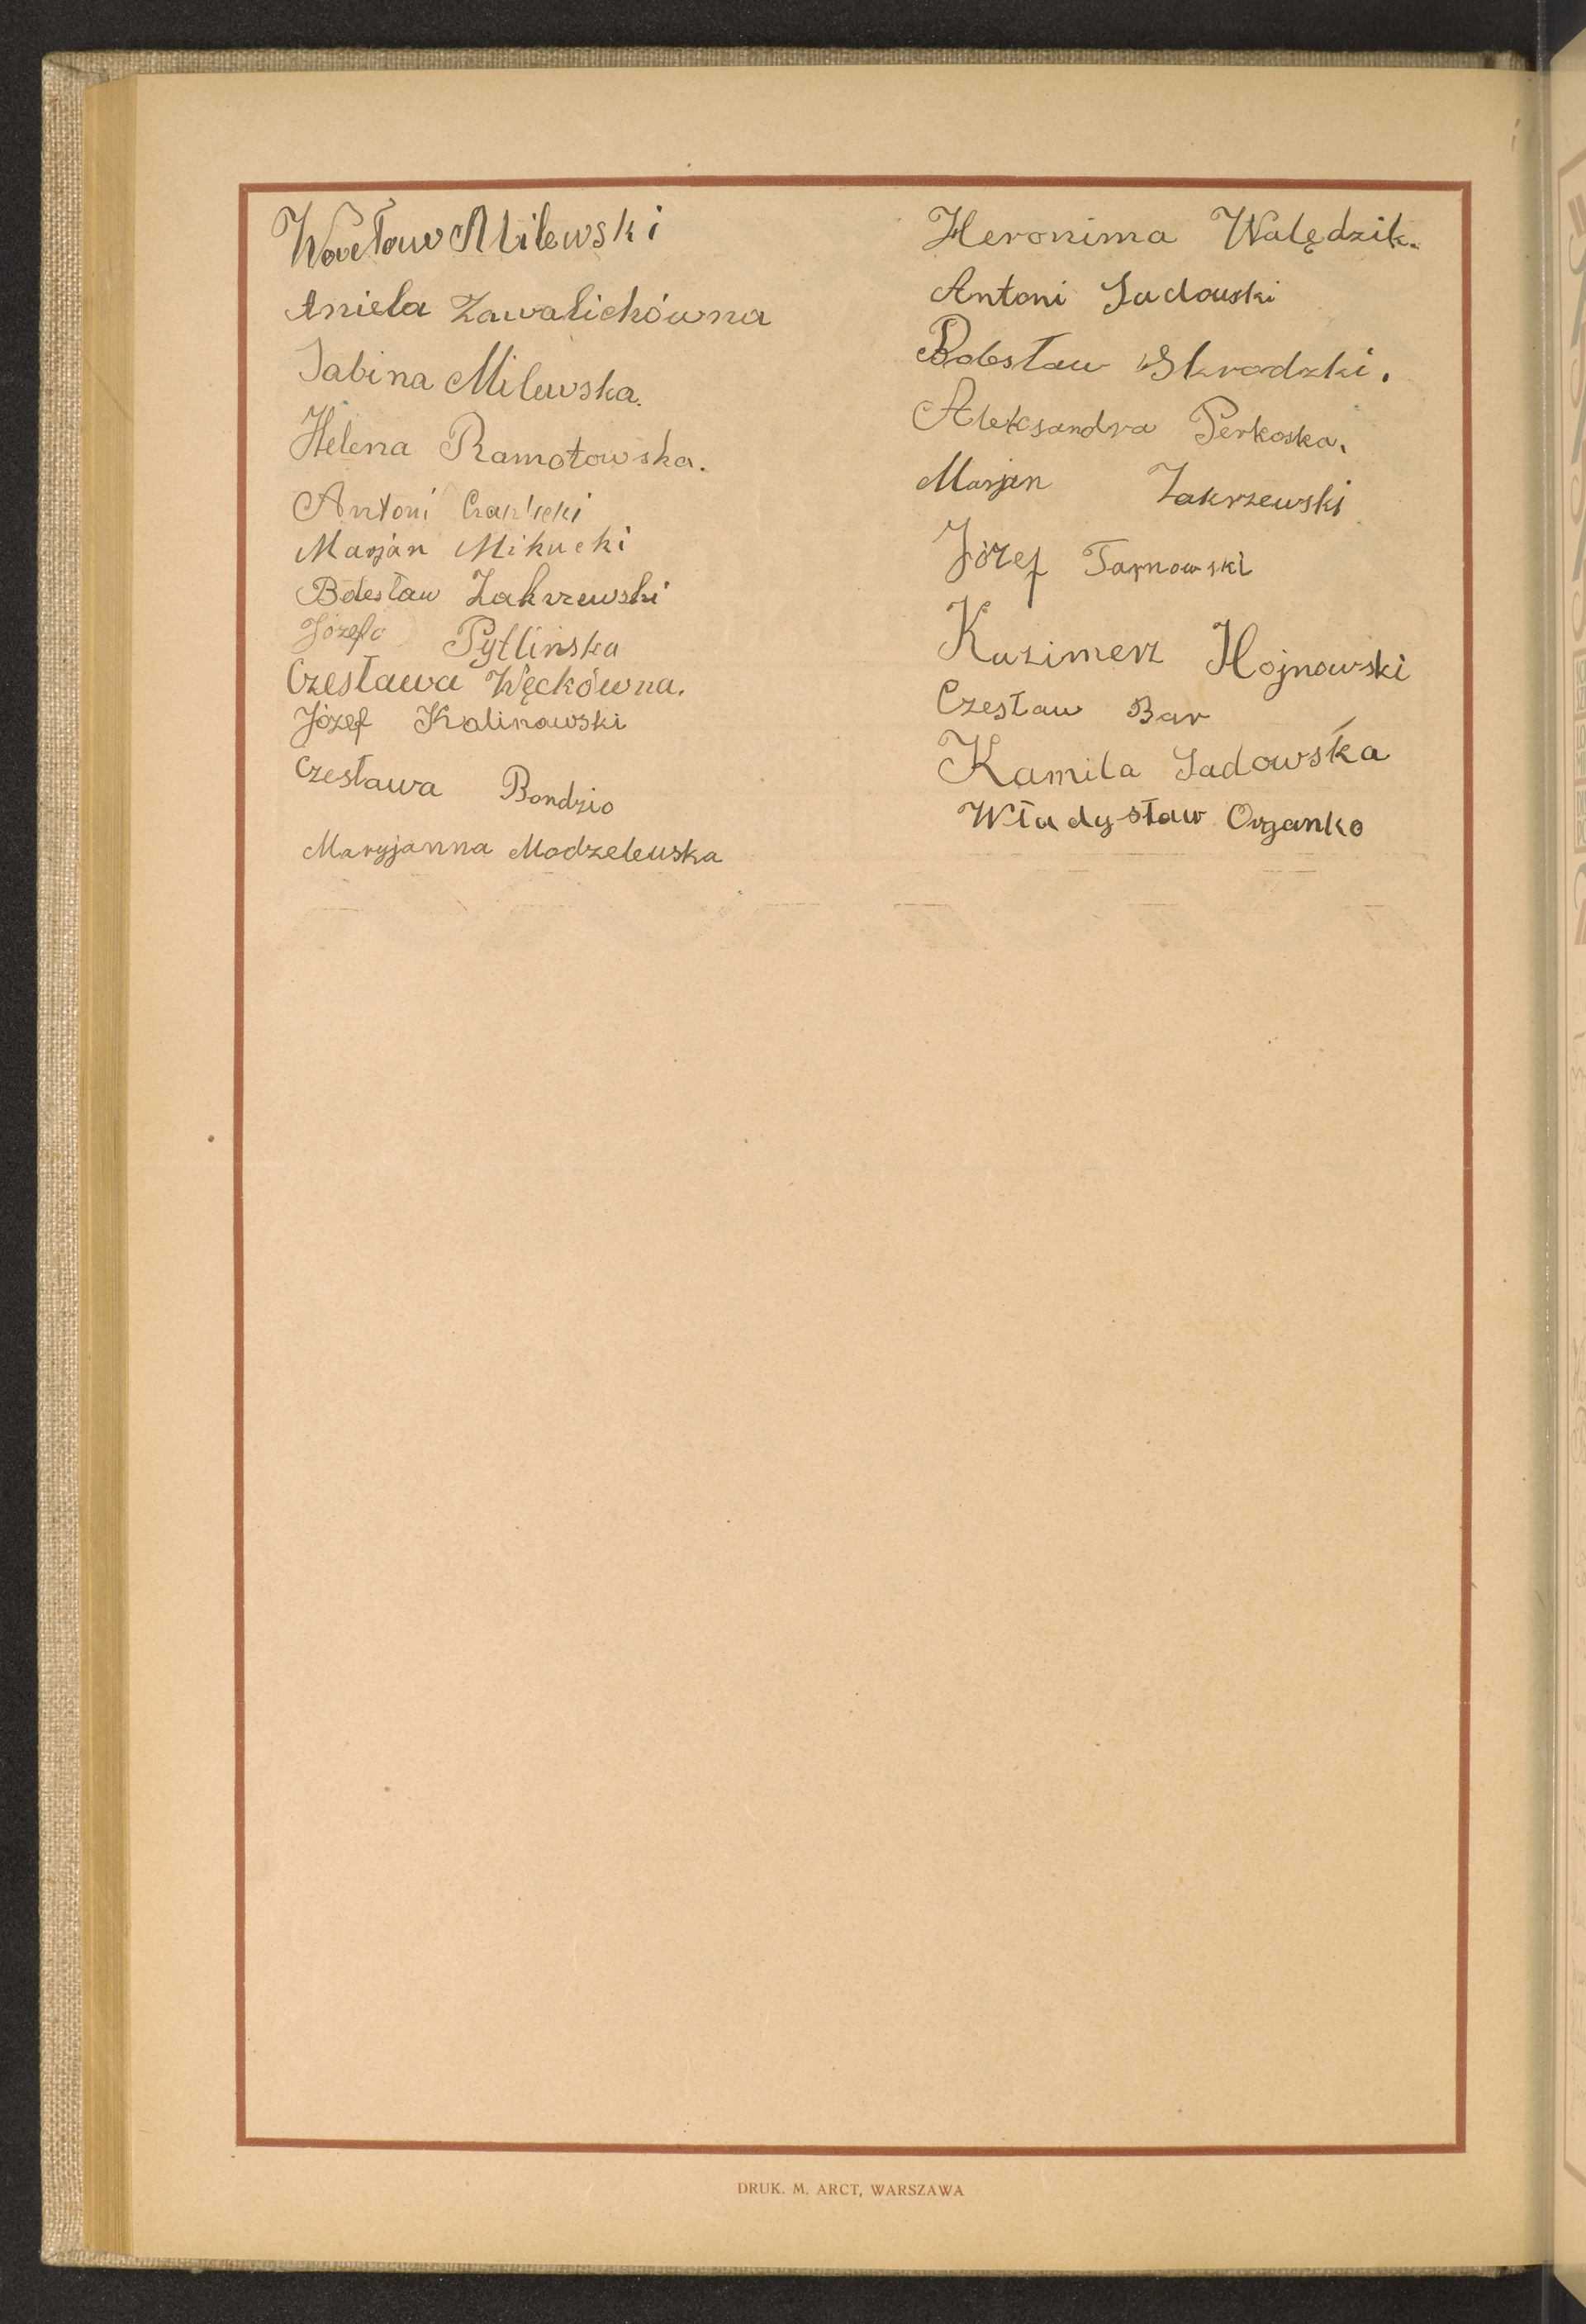 Wacław Milewski
Aniela Zawalichówna
Sabina Milewska.
Helena Ramotowska.
Antoni
Marjan Mikucki
Bolesław Zakrzewski
Józefa Pytlińska
Czesława Węckówna.
Józef Kalinowski
Czesława Bondzio
Maryjanna Modzelewska
Heronima Walędzik.
Antoni Sadowski
Bolesław Skrodzki.
Aleksandra Perkoska.
Marjan Zakrzewski
Józef Tarnowski
Kazimerz Hojnowski
Czesław Bar
Kamila Sadowska
Władysław Organko
DRUK. M. ARCT, WARSZAWA